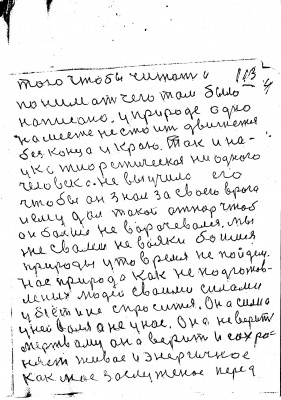 того чтобы читат и
113
понимат чего там было
написано. у природе одно
на месте не стоит движется
без конца и краю. Так и на-
ука теоретическая ни одного
человека. не выучила его
чтобы он знал за своего врага
и ему дал такой отпор чтоб
он больше не ворочевался. мы
же с вами не вояки больше
природы у то время не пойдем.
нас природа как не подготов-
леных людей своими силами
убьёт и не спросится. Она сила
у ней воля а не у нас. Она не верит
мертвому она верит и сохра-
няет живое и энергичное
какое заслуженое перед